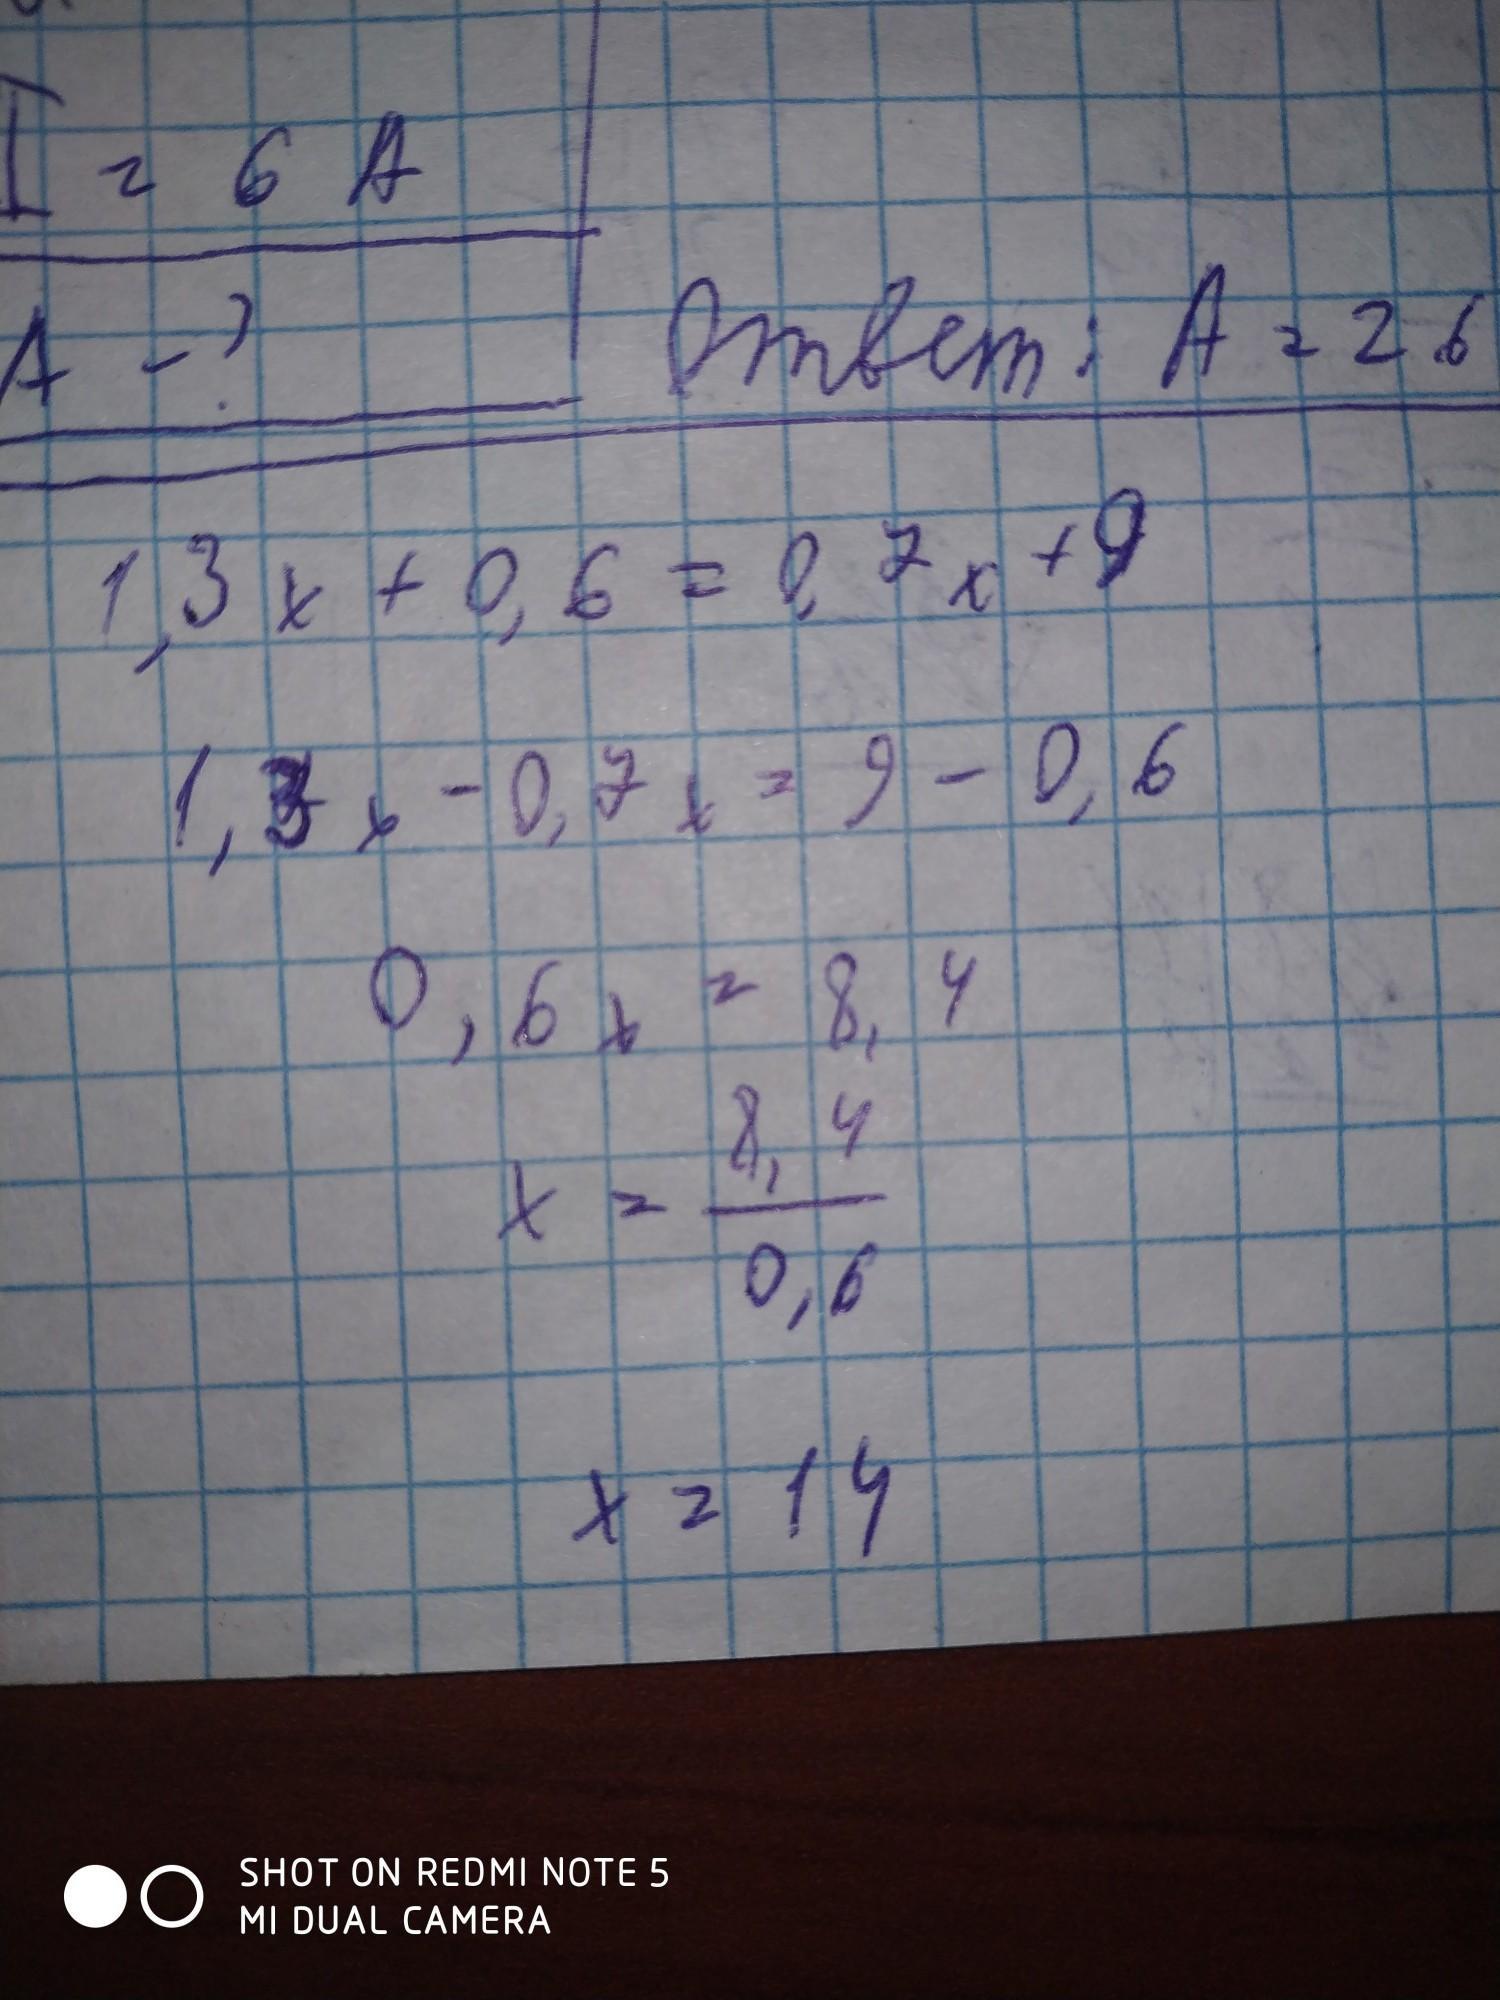 I = 6 A
A - ?
Ответ: A = 26
1,3x + 0,6 = 0,7x + 9
1,3x - 0,7x = 9 - 0,6
0,6x = 8,4
x = 8,4 / 0,6
x = 14
SHOT ON REDMI NOTE 5
MI DUAL CAMERA